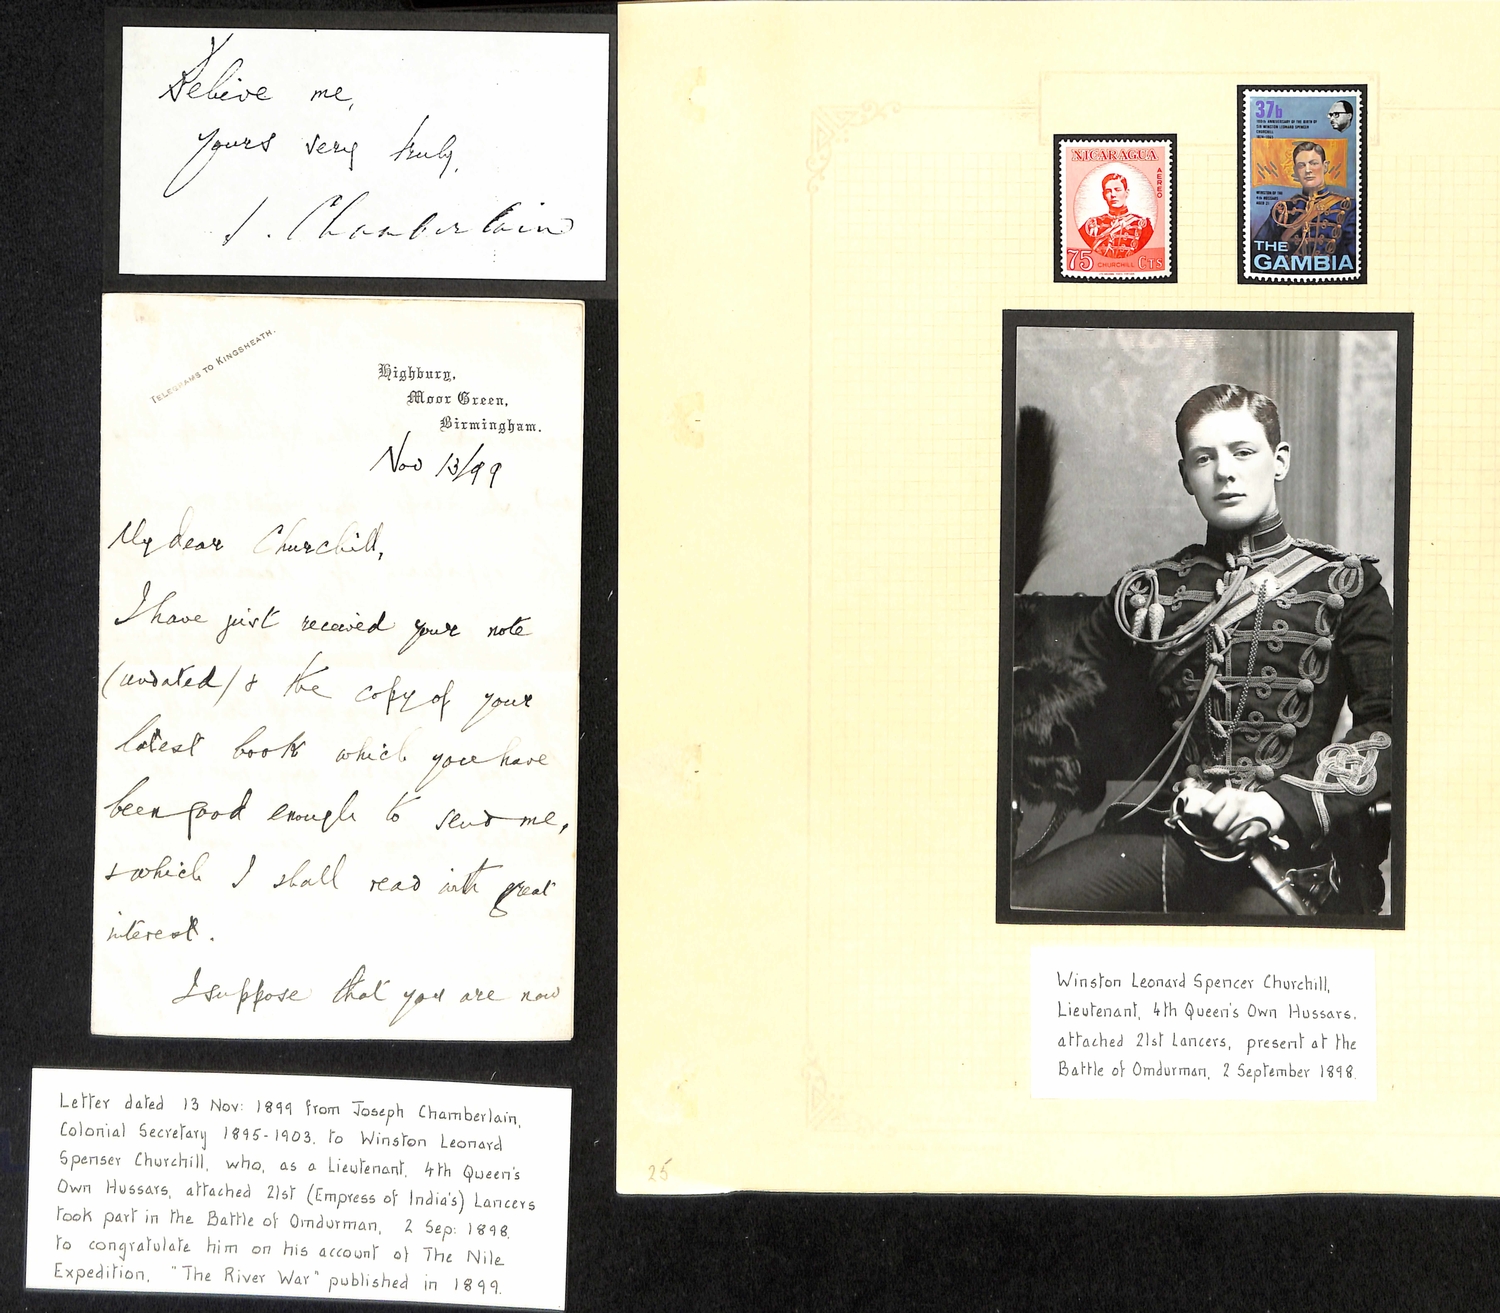 Believe me,
yours very truly,
J. Chamberlain
TELEGRAMS TO KINGSHEATH.
Highbury,
Moor Green,
Birmingham.
Nov 13/99
My dear Churchill,
I have just received your note
(undated) & the copy of your
latest book which you have
been good enough to send me,
& which I shall read with great
interest.
I suppose that you are now
Letter dated 13 Nov: 1899 from Joseph Chamberlain,
Colonial Secretary 1895-1903, to Winston Leonard
Spenser Churchill, who, as a Lieutenant, 4th Queen's
Own Hussars, attached 21st (Empress of India's) Lancers
took part in the Battle of Omdurman, 2 Sep: 1898,
to congratulate him on his account of The Nile
Expedition, "The River War" published in 1899.
NICARAGUA
AEREO
75 CHURCHILL CTS
37b
100TH ANNIVERSARY OF THE BIRTH OF
SIR WINSTON LEONARD SPENCER
CHURCHILL
1874-1965
WINSTON OF THE
4TH HUSSARS
AGED 21
THE
GAMBIA
Winston Leonard Spencer Churchill,
Lieutenant, 4th Queen's Own Hussars.
attached 21st Lancers, present at the
Battle of Omdurman, 2 September 1898.
25